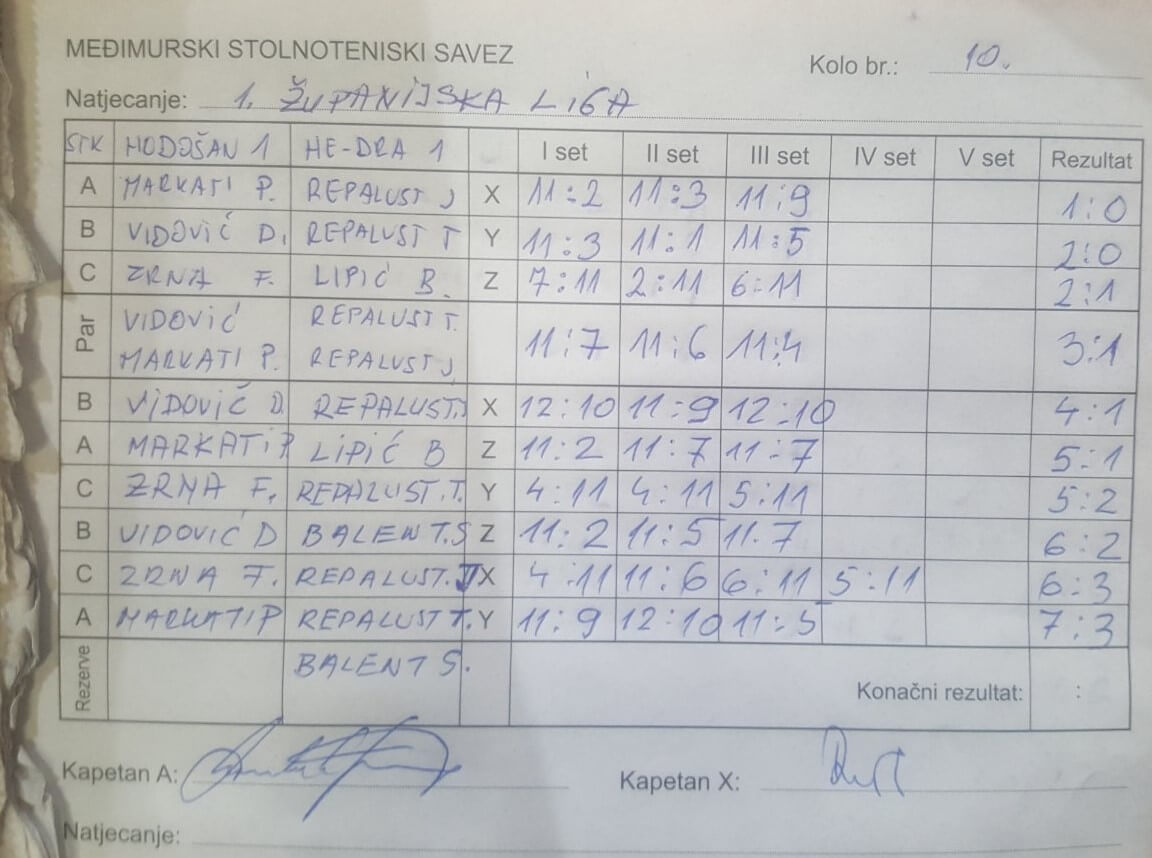 MEĐIMURSKI STOLNOTENISKI SAVEZ
Kolo br.: 10.
Natjecanje: 1. ŽUPANIJSKA LIGA
STK HODOŠAN 1 HE-DRA 1 I set II set III set IV set V set Rezultat
A MARKATI P. REPALUST J X 11:2 11:3 11:9 1:0
B VIDOVIĆ D. REPALUST T Y 11:3 11:1 11:5 2:0
C ZRNA F. LIPIĆ B. Z 7:11 2:11 6:11 2:1
Par VIDOVIĆ REPALUST T.
MARKATI P. REPALUST J 11:7 11:6 11:4 3:1
B VIDOVIĆ D. REPALUST J X 12:10 11:9 12:10 4:1
A MARKATI P LIPIĆ B Z 11:2 11:7 11-7 5:1
C ZRNA F. REPALUST.T. Y 4:11 4:11 5:11 5:2
B VIDOVIĆ D BALENT.S Z 11:2 11:5 11.7 6:2
C ZRNA F. REPALUST.J X 4:11 11:6 6:11 5:11 6:3
A MARKATI P REPALUST T. Y 11:9 12:10 11:5 7:3
Rezerve BALENT S. Konačni rezultat: :
Kapetan A:
Kapetan X:
Natjecanje: